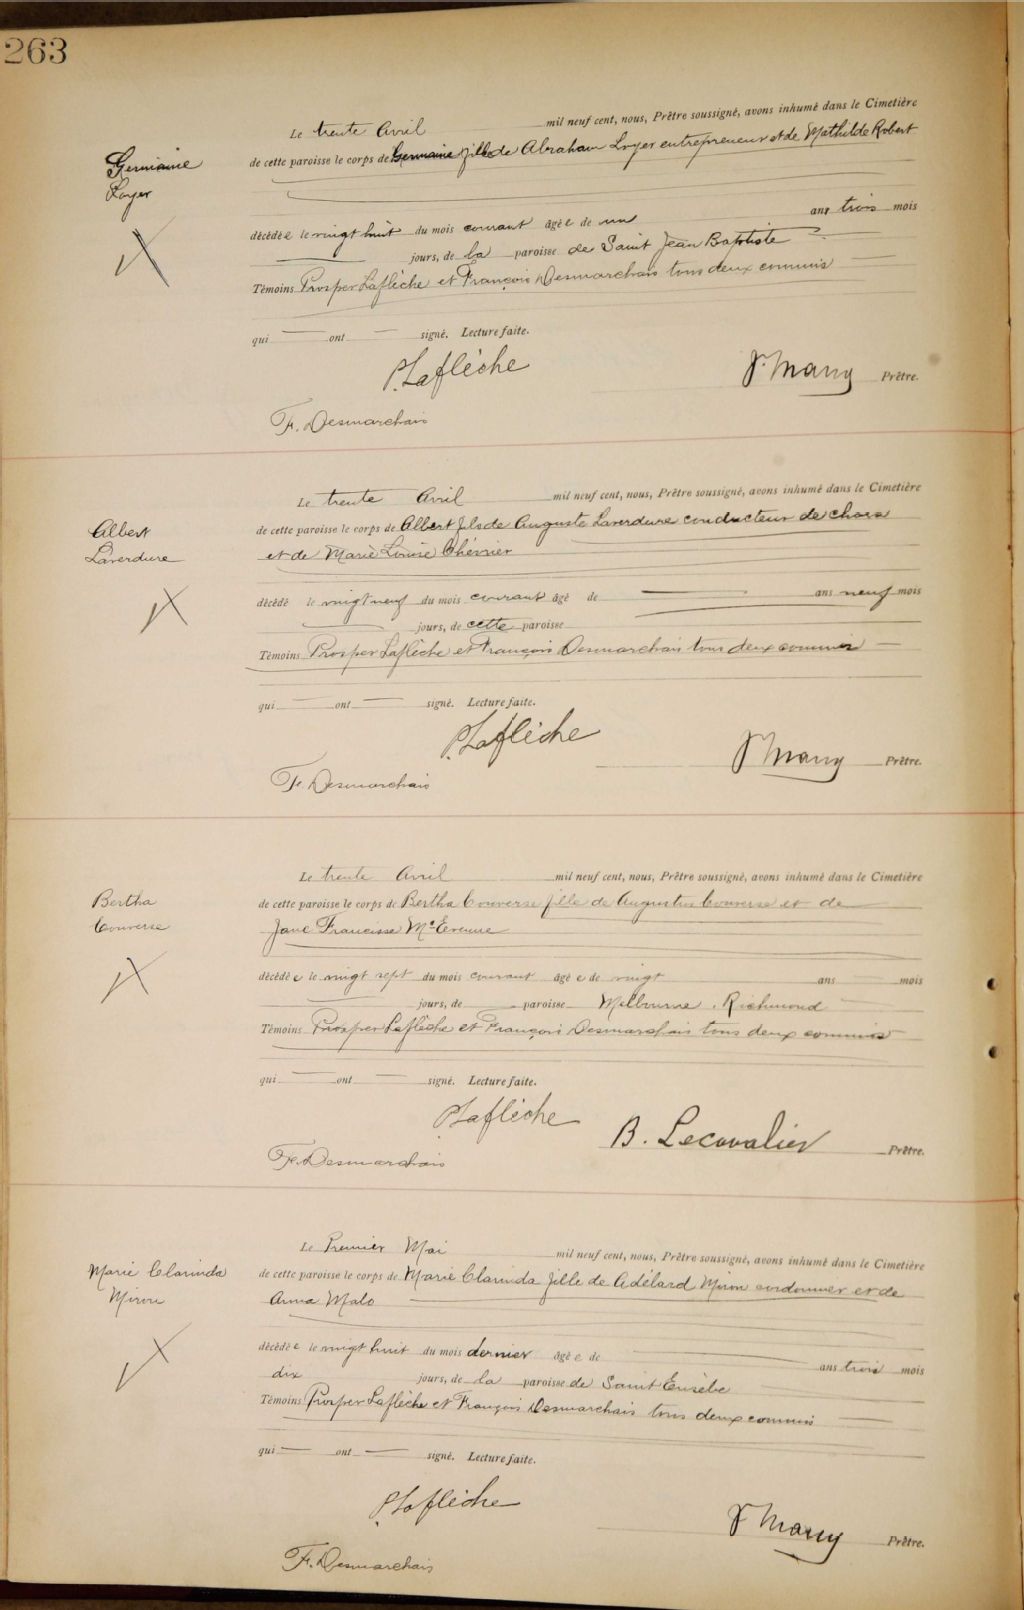 263
Le trente Avril mil neuf cent, nous, Prêtre soussigné, avons inhumé dans le Cimetière
Germaine
Loyer
de cette paroisse le corps de Germaine fille de Abraham Loyer entrepreneur et de Mathilde Robert
décédée le vingt huit du mois courant âgée de un ans trois mois
jours, de la paroisse de Saint Jean Baptiste
Témoins Prosper Laflèche et François Desmarchais tous deux commis
qui ont signé. Lecture faite.
P. Laflèche
Prêtre.
F. Desmarchais
Le trente Avril mil neuf cent, nous, Prêtre soussigné, avons inhumé dans le Cimetière
Albert
Laverdure
de cette paroisse le corps de Albert fils de Auguste Laverdure conducteur de chars
et de Marie Louise Chévrier
décédé le vingt neuf du mois courant âgé de ans neuf mois
jours, de cette paroisse
Témoins Prosper Laflèche et François Desmarchais tous deux commis
qui ont signé. Lecture faite.
P. Laflèche
Prêtre.
F. Desmarchais
Le trente Avril mil neuf cent, nous, Prêtre soussigné, avons inhumé dans le Cimetière
Bertha
Converse
de cette paroisse le corps de Bertha Converse fille de Augustus Converse et de
Jane Francisse
décédée le vingt sept du mois courant âgée de vingt ans mois
jours, de paroisse Melbourne. Richmond
Témoins Prosper Laflèche et François Desmarchais tous deux commis
qui ont signé. Lecture faite.
P. Laflèche
B. Lecavalier Prêtre.
F. Desmarchais
Le Premier Mai mil neuf cent, nous, Prêtre soussigné, avons inhumé dans le Cimetière
Marie Clarinda
Miron
de cette paroisse le corps de Marie Clarinda fille de Adélard Miron cordonnier et de
Anna Malo
décédée le vingt huit du mois dernier âgée de ans trois mois
dix jours, de la paroisse de Saint Eusèbe
Témoins Prosper Laflèche et François Desmarchais tous deux commis
qui ont signé. Lecture faite.
P. Laflèche
Prêtre.
F. Desmarchais